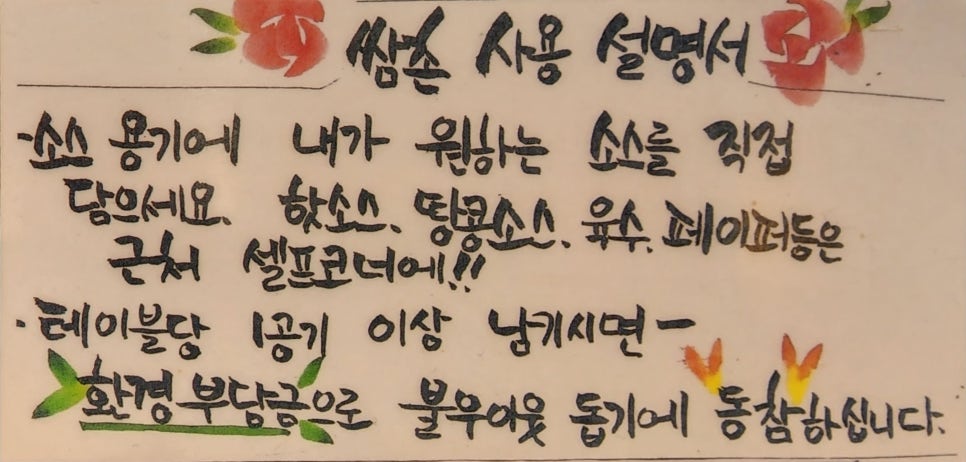 쌈촌 사용 설명서
·소스 용기에 내가 원하는 소스를 직접
담으세요. 핫소스, 땅콩소스, 육수, 페이퍼등은
근처 셀프코너에!!
·테이블당 1공기 이상 남기시면-
환경부담금으로 불우이웃 돕기에 동참하십니다.